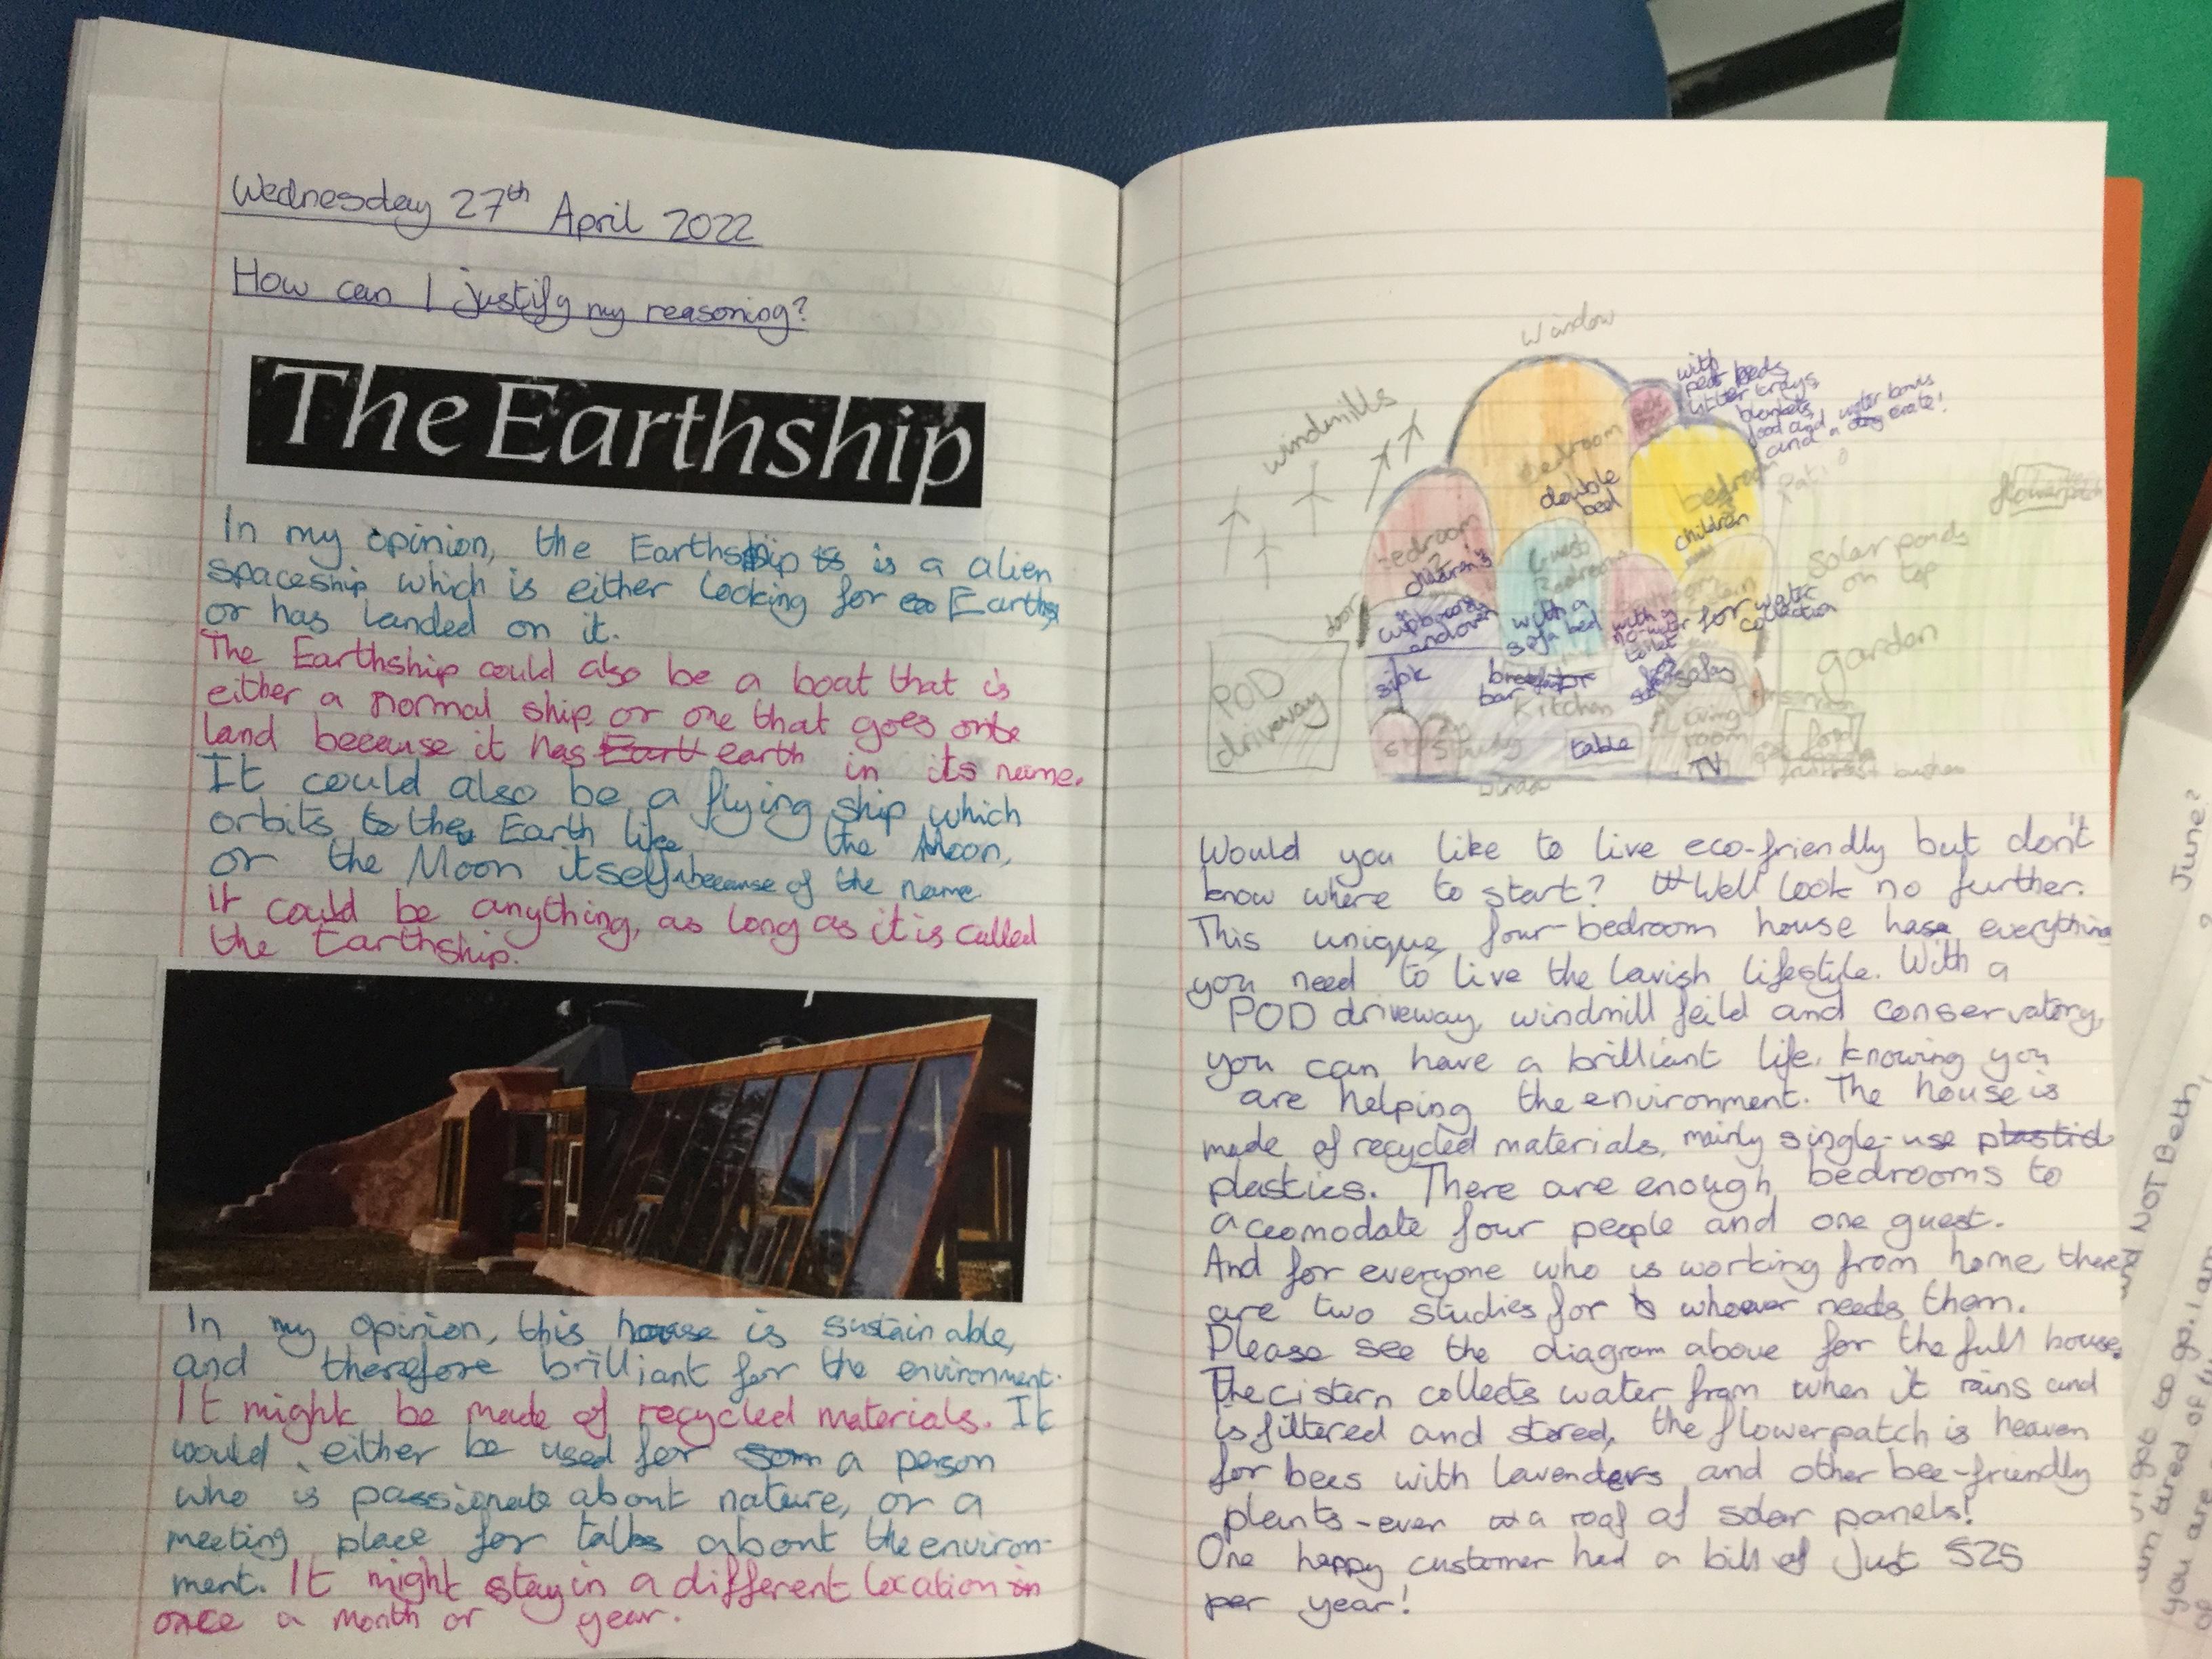 Wednesday 27th April 2022
How can I justify my reasoning?
The Earthship
In my opinion, the Earthship is is a alien
spaceship which is either looking for Earth,
or has landed on it.
The Earthship could also be a boat that is
either a normal ship or one that goes onto
land because it has Eart earth in its name.
It could also be a flying ship which
orbits to the Earth like the Moon,
or the Moon itself because of the name.
It could be anything, as long as it is called
the Earthship.
In my opinion, this house is sustainable,
and therefore brilliant for the environment.
It might be made of recycled materials. It
would either be used for som a person
who is passionate about nature, or a
meeting place for talks about the environ-
ment. It might stay in a different location in
once a month or year.
Window
windmills
with
pet beds
litter trays
blankets
food and water bowls
and a dog crate!
bedroom
double
bed
bedroom
children
Patio
flowerpatch
bedroom
2
children's
Guest
Bedroom
with a
sofa bed
Solar ponds
on top
door
cupboards
and oven
with a
no-water
toilet
for water
collection
garden
POD
driveway
sink
breakfast
bar
Kitchen
sofas
living
room
study
table
TV
window
Would you like to live eco-friendly but don't
know where to start? W Well look no further.
This unique four-bedroom house has everything
you need to live the lavish lifestyle. With a
POD driveway, windmill feild and conservatory,
you can have a brilliant life, knowing you
are helping the environment. The house is
made of recycled materials, mainly single-use plastics
plastics. There are enough bedrooms to
accomodate four people and one guest.
And for everyone who is working from home there
are two studies for whoever needs them.
Please see the diagram above for the full house.
The cistern collects water from when it rains and
is filtered and stored, the flowerpatch is heaven
for bees with lavenders and other bee-friendly
plants-ever a roof of solar panels!
One happy customer had a bill of just $25
per year!
June?
NOT Beth,
got to go. I am
am tired of
you are